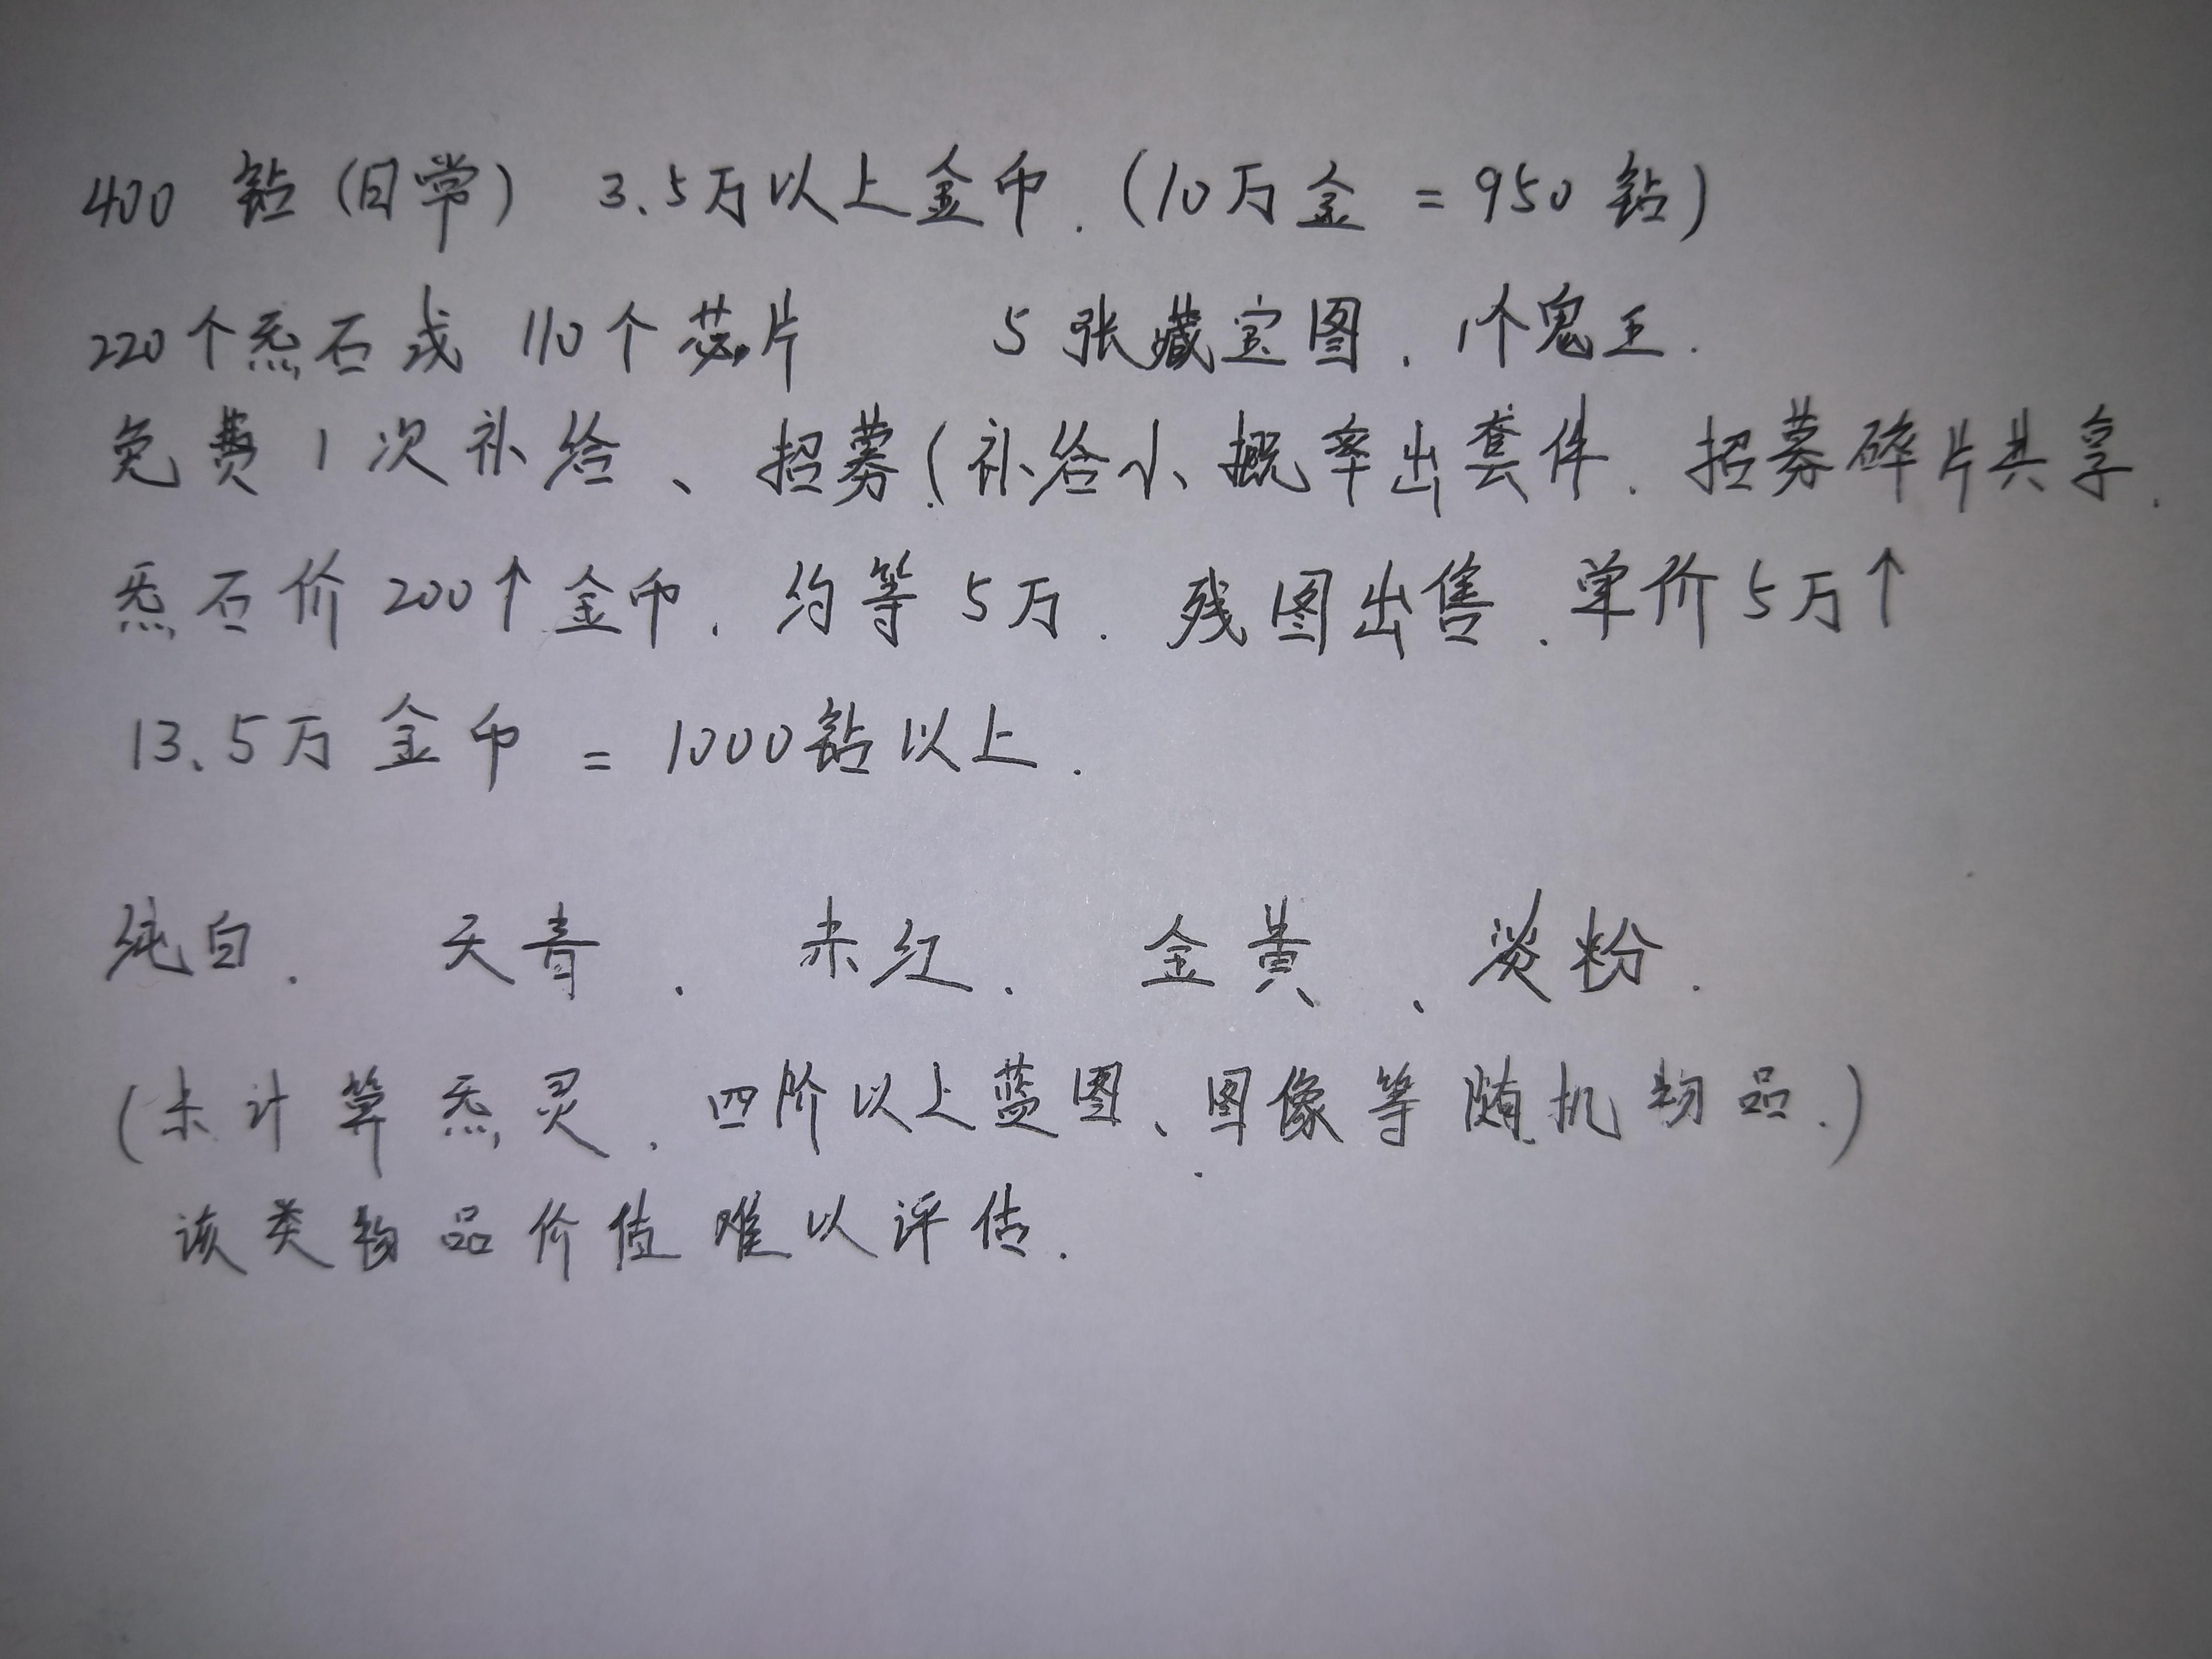 400 钻(日常) 3.5万以上金币.(10万金 = 950 钻)
220个炁石或 110个芯片 5 张藏宝图、1个鬼王.
免费1次补给、招募(补给小概率出套件.招募碎片共享.
炁石价200↑金币.约等5万.残图出售.单价5万↑
13.5万金币 = 1000钻以上.
纯白. 天青. 朱红. 金黄、淡粉.
(未计算炁灵.四阶以上蓝图、图像等随机物品.)
该类物品价值难以评估.